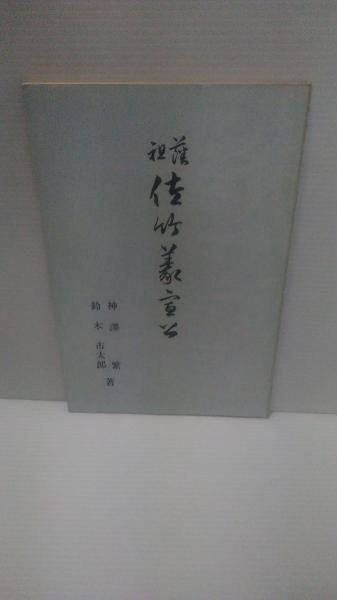 藩祖
佐竹義宣公
神澤繁
鈴木市太郎
著